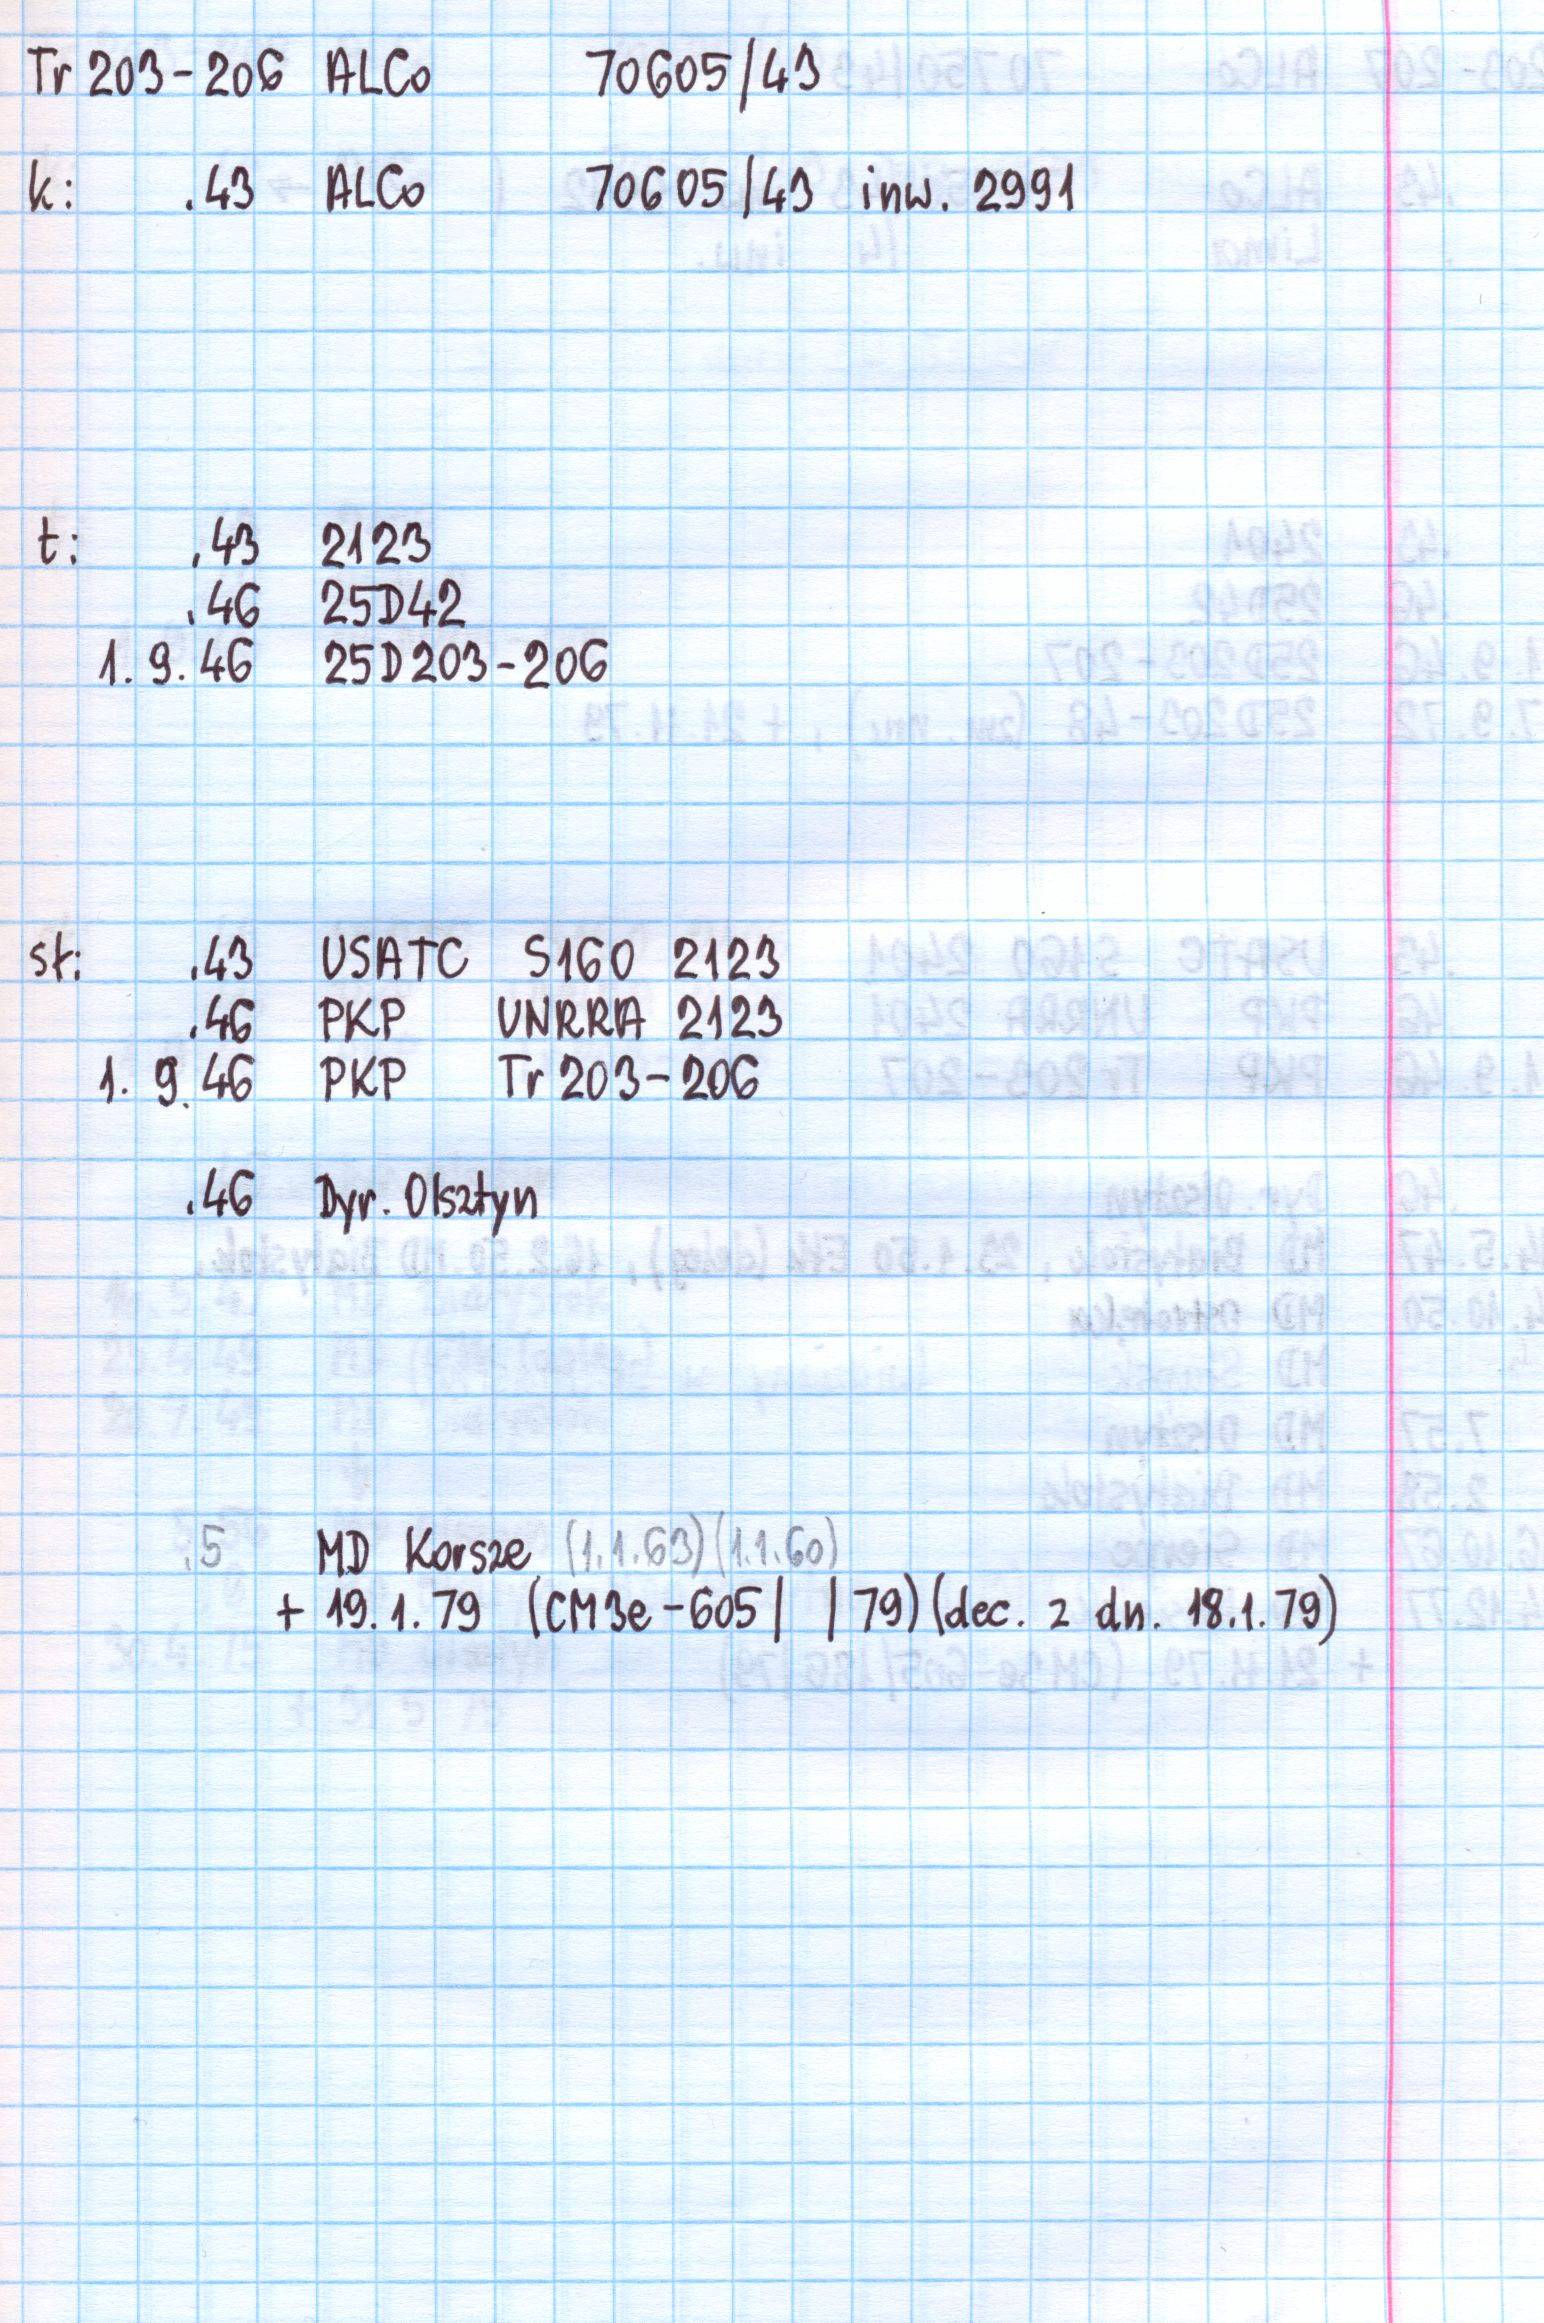 Tr 203-206 ALCo 70605/43
k: .43 ALCo 70605/43 inw. 2991
t: .43 2123
.46 25D42
1.9.46 25D203-206
st: .43 USATC S160 2123
.46 PKP UNRRA 2123
1.9.46 PKP Tr 203-206
.46 Dyr. Olsztyn
.5 MD Korsze (1.1.63)(1.1.60)
+ 19.1.79 (CM3e-605/ /79)(dec. z dn. 18.1.79)